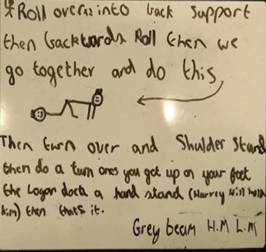 Roll over into back support
then backwards Roll then we
go together and do this
Then turn over and Shulder Stand
then do a turn ones you get up on your feet
the Logan doch a hand stand (Harrey will hold
him) then thats it.
Grey beam H.M L.M